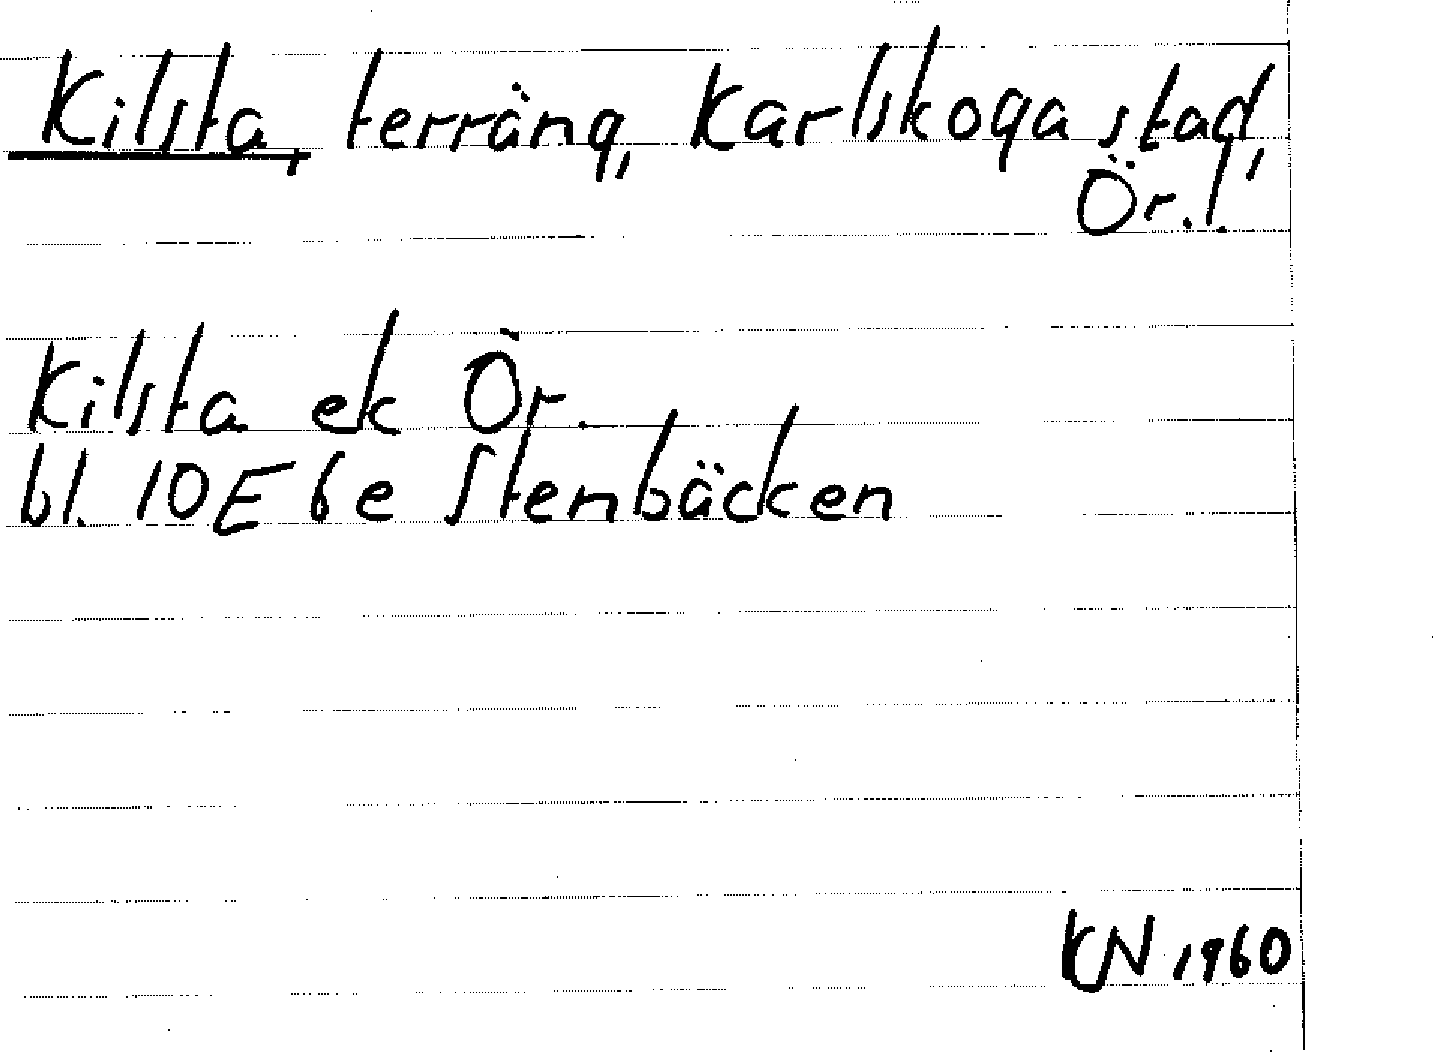 Kilsta, terräng, Karlskoga stad,
Ör.l.
Kilsta ek Ör.
bl. 10E 6e Stenbäcken
KN 1960